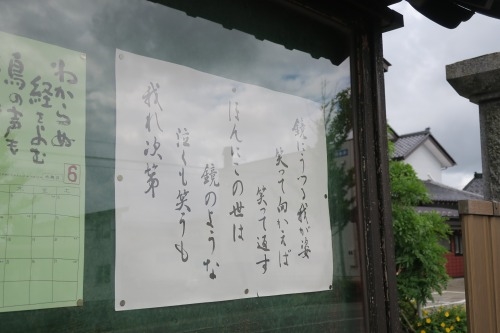 鏡にうつる我が姿
笑って向かえば
笑って返す
ほんにこの世は
鏡のような
泣くも笑うも
我れ次第
わからぬ
経をよむ
鳥の声も
6